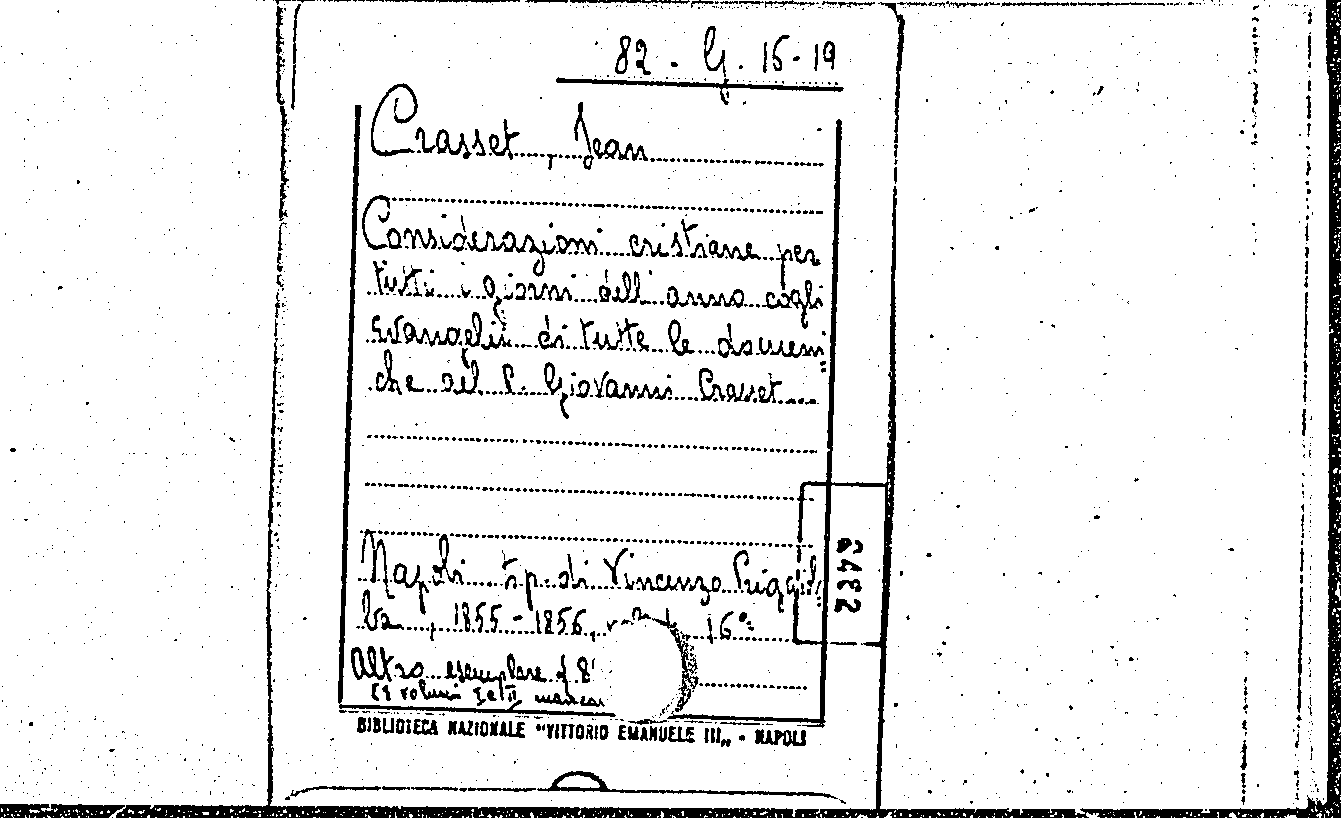 82 - G. 15-19
Crasset, Jean
Considerazioni cristiane per
tutti i giorni dell'anno cogli
evangelii di tutte le domeni
che del P. Giovanni Crasset...
Napoli tip. di Vincenzo
, 1855-1856, 16°
Altro esemplare
volumi I e II
2482
BIBLIOTECA NAZIONALE "VITTORIO EMANUELE III„ - NAPOLI